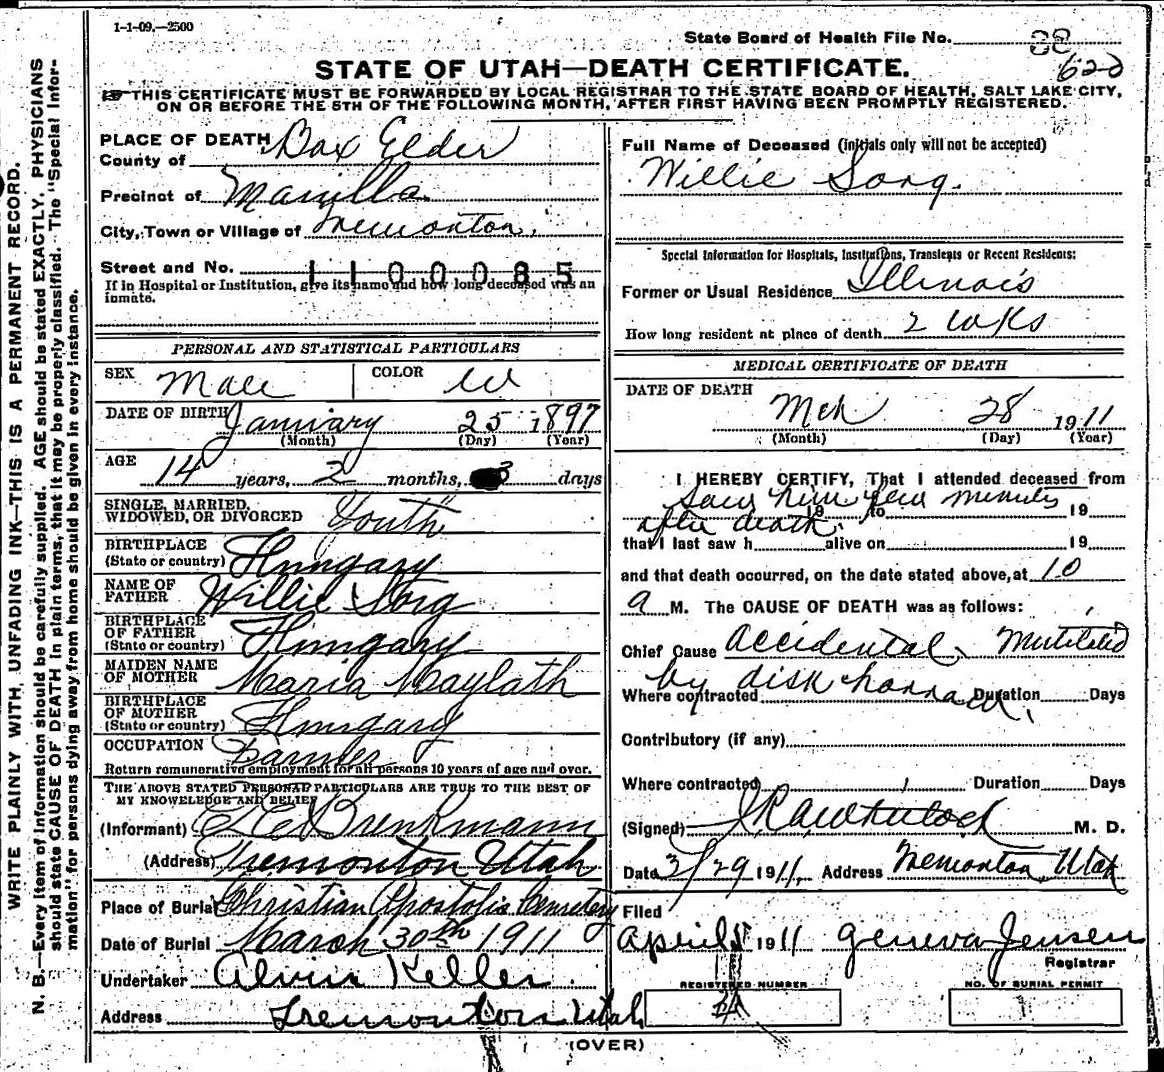 1-1-09.—2500
State Board of Health File No.
STATE OF UTAH—DEATH CERTIFICATE.
622
THIS CERTIFICATE MUST BE FORWARDED BY LOCAL REGISTRAR TO THE STATE BOARD OF HEALTH, SALT LAKE CITY,
ON OR BEFORE THE 5TH OF THE FOLLOWING MONTH, AFTER FIRST HAVING BEEN PROMPTLY REGISTERED.
WRITE PLAINLY WITH UNFADING INK—THIS IS A PERMANENT RECORD.
N. B.—Every item of Information should be carefully supplied. AGE should be stated EXACTLY. PHYSICIANS
should state CAUSE OF DEATH in plain terms, that it may be properly classified. The "Special Infor-
mation" for persons dying away from home should be given in every instance.
PLACE OF DEATH
County of Box Elder
Precinct of Manilla
City, Town or Village of Tremonton,
Street and No. 1100085
If in Hospital or Institution, give its name and how long deceased was an
inmate.
PERSONAL AND STATISTICAL PARTICULARS
SEX Male COLOR W
DATE OF BIRTH January 25 1897
(Month) (Day) (Year)
AGE 14 years, 2 months, 3 days
SINGLE, MARRIED,
WIDOWED, OR DIVORCED Youth
BIRTHPLACE
(State or country) Hungary
NAME OF
FATHER Willie Sorg
BIRTHPLACE
OF FATHER
(State or country) Hungary
MAIDEN NAME
OF MOTHER Maria Maylath
BIRTHPLACE
OF MOTHER
(State or country) Hungary
OCCUPATION Farmer
Return remunerative employment for all persons 10 years of age and over.
THE ABOVE STATED PERSONAL PARTICULARS ARE TRUE TO THE BEST OF
MY KNOWLEDGE AND BELIEF
(Informant) Brinkmann
(Address) Tremonton Utah
Place of Burial Christian Apostolic Cemetery
Date of Burial March 30th 1911
Undertaker Alvin Keller
Address Tremonton Utah
Full Name of Deceased (initials only will not be accepted)
Willie Sorg.
Special Information for Hospitals, Institutions, Transients or Recent Residents:
Former or Usual Residence Illinois
How long resident at place of death 2 wks
MEDICAL CERTIFICATE OF DEATH
DATE OF DEATH
Mch 28 1911
(Month) (Day) (Year)
I HEREBY CERTIFY, That I attended deceased from
Saw him few minutes 19 to 19
after death.
that I last saw h alive on 19
and that death occurred, on the date stated above, at 10
a M. The CAUSE OF DEATH was as follows:
Chief Cause Accidental, Mutilated
by disk harrow.
Where contracted Duration Days
Contributory (if any)
Where contracted Duration Days
(Signed) M. D.
Date 3/29 1911, Address Tremonton, Utah
Filed
April 1911 Geneva Jensen
Registrar
REGISTERED NUMBER
NO. OF BURIAL PERMIT
(OVER)